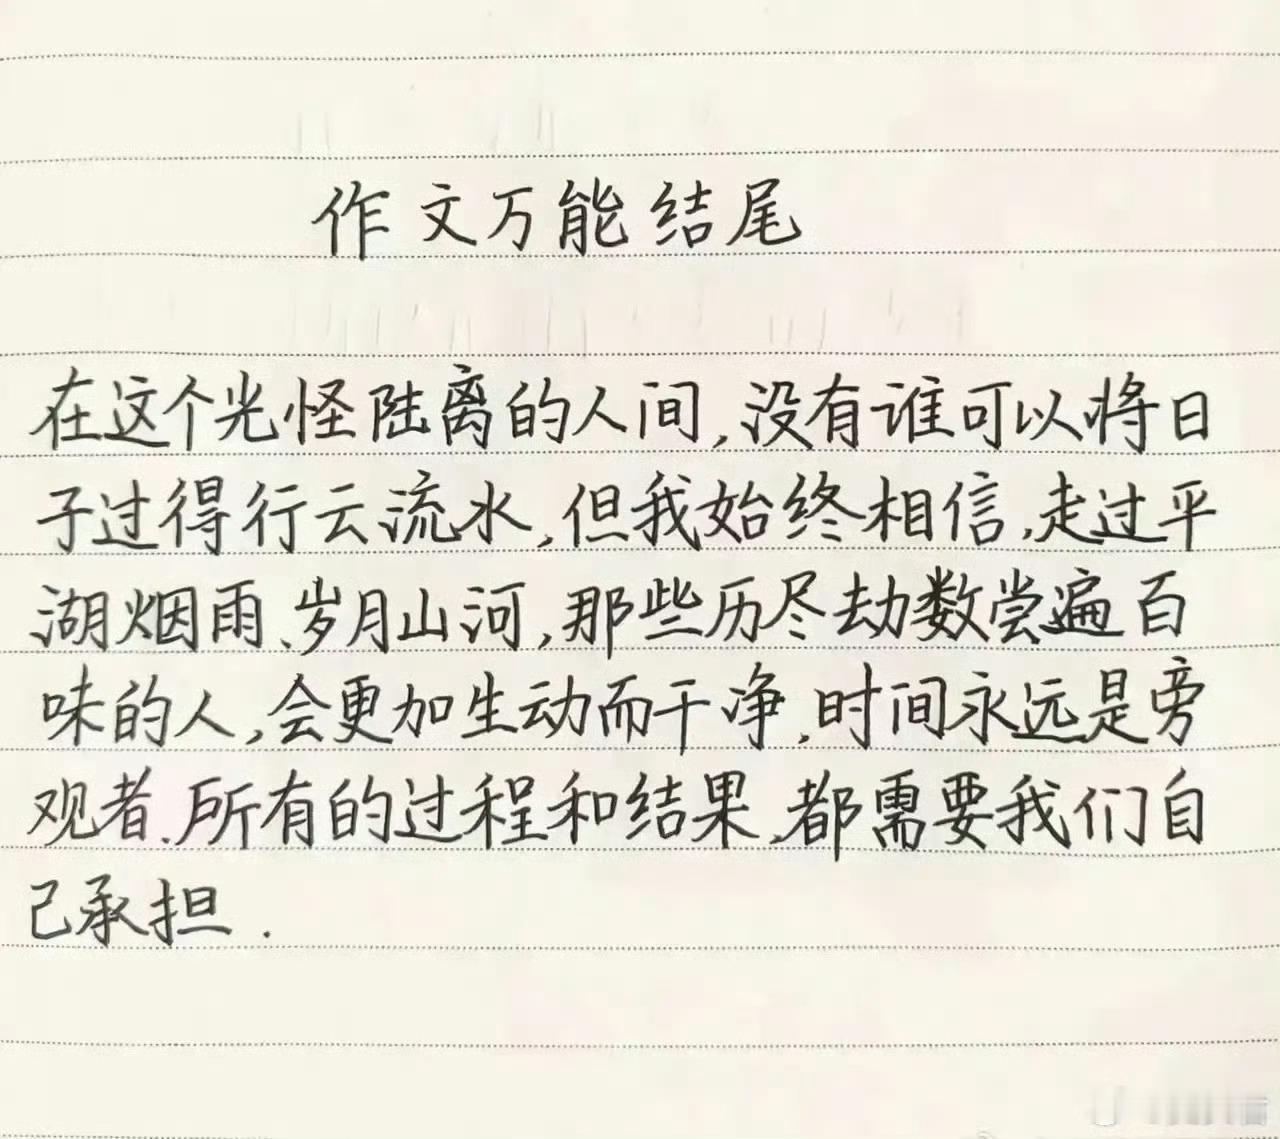 作文万能结尾
在这个光怪陆离的人间,没有谁可以将日
子过得行云流水,但我始终相信,走过平
湖烟雨、岁月山河,那些历尽劫数尝遍百
味的人,会更加生动而干净,时间永远是旁
观者.所有的过程和结果,都需要我们自
己承担.